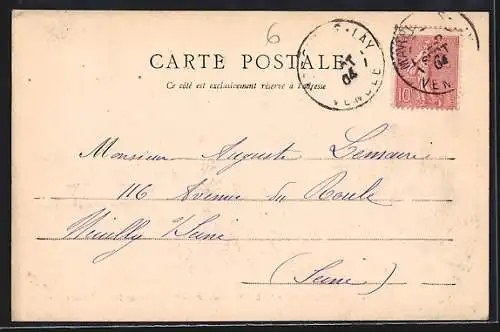 6
CARTE POSTALE
Ce côté est exclusivement réservé à l'adresse
S-LAY
OCT
04
VENDÉE
MAREUIL
10
04
VEN
Monsieur Auguste Lemaire
116 Avenue du Roule
Neuilly s/Seine
(Seine)